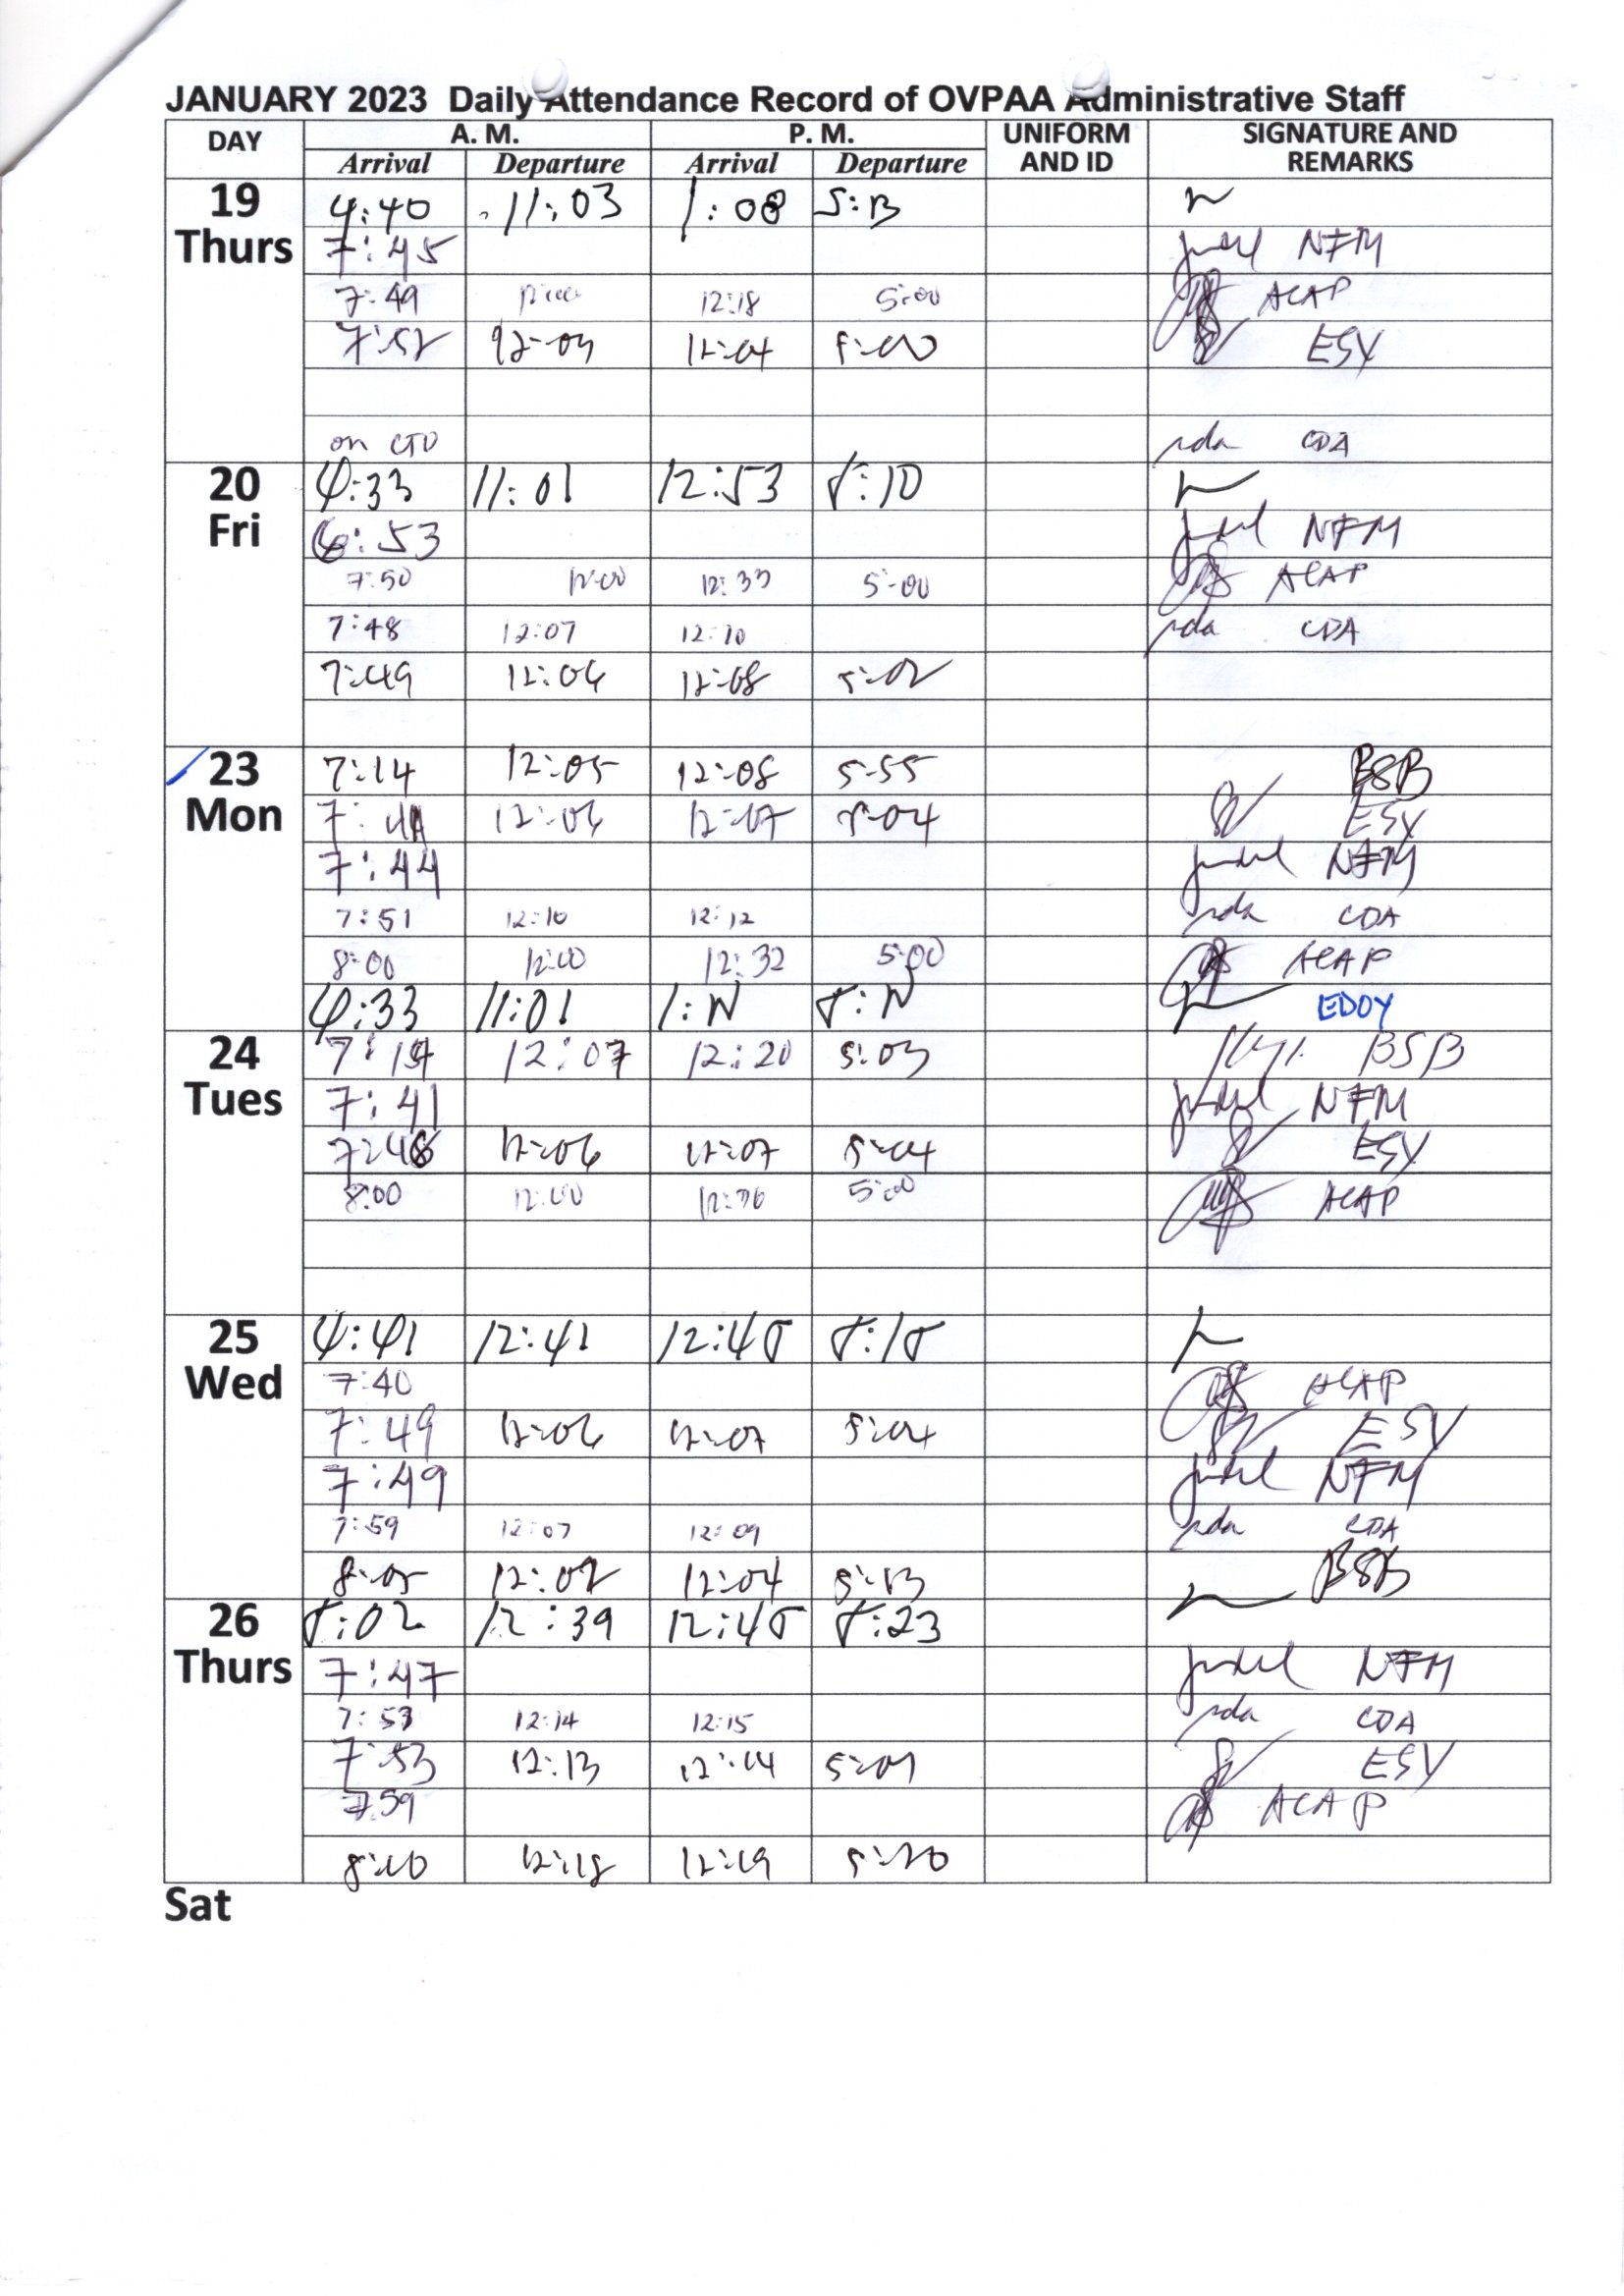 JANUARY 2023 Daily Attendance Record of OVPAA Administrative Staff
DAY A. M. P. M. UNIFORM AND ID SIGNATURE AND REMARKS
Arrival Departure Arrival Departure
19 Thurs
4:40 11:03 1:08 5:13
7:45 NFM
7:49 12:00 12:18 5:00 ACAP
7:52 12:03 12:04 5:00 ESY
on CTO CDA
20 Fri
4:33 11:01 12:53 5:10
6:53 NFM
7:50 12:00 12:33 5:00 ACAP
7:48 12:07 12:10 CDA
7:49 12:06 12:08 5:02
23 Mon
7:14 12:05 12:08 5:55 BSB
12:06 12:07 5:04 ESY
7:44 NFM
7:51 12:10 12:12 CDA
8:00 12:00 12:32 5:00 ACAP
4:33 11:01 EDOY
24 Tues
12:07 12:20 5:03 BSB
7:41 NFM
7:48 12:06 12:07 5:04 ESY
8:00 12:00 5:00 ACAP
25 Wed
4:41 12:41 12:45 5:15
7:40 ACAP
7:49 12:06 12:07 5:04 ESY
7:49 NFM
7:59 12:07 12:09 CDA
8:05 12:02 12:04 5:13 BSB
26 Thurs
5:02 12:39 12:45 5:23
7:47 NFM
7:53 12:14 12:15 CDA
7:53 12:13 12:14 ESY
7:59 ACAP
8:10 12:18 12:19 5:20
Sat